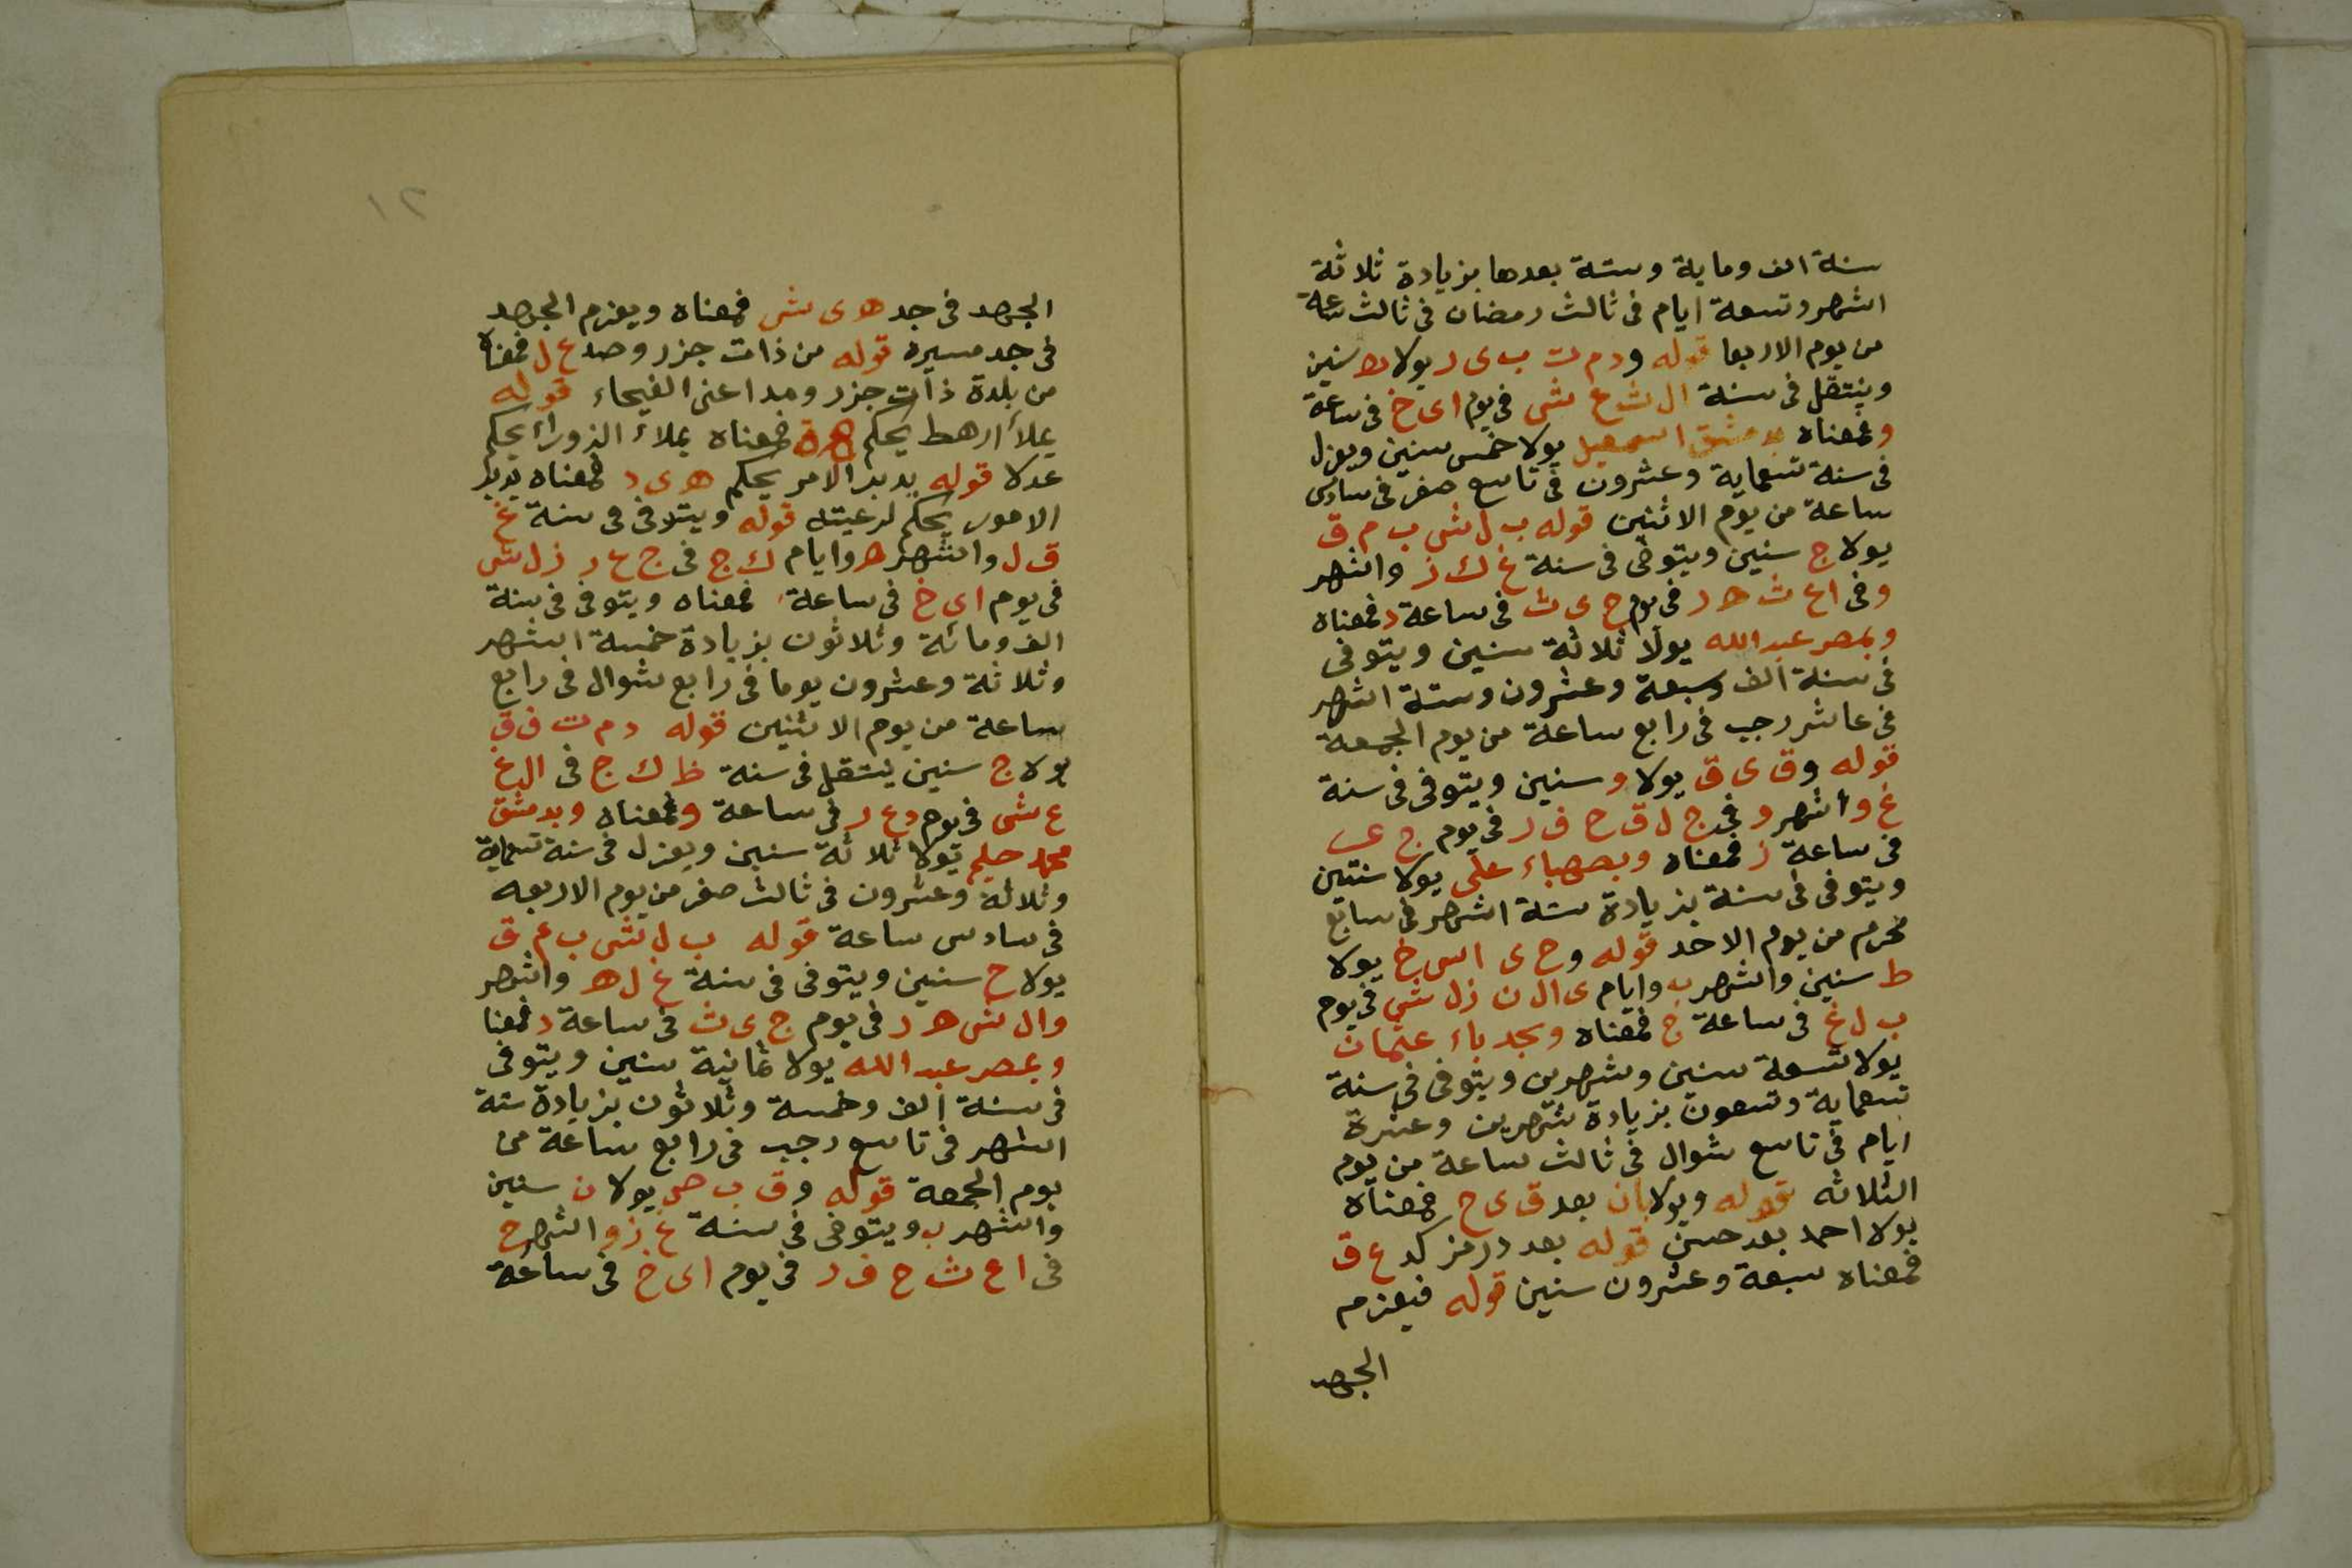 سنة الف وماية وستة بعدها بزيادة ثلاثة
اشهر وتسعة ايام فى ثالث رمضان فى ثالث ساعة
من يوم الاربعا قوله ودم ت ب ى ر يولا ه سنين
وينتقل فى سنة ال ش ع ش فى يوم اى خ فى ساعة
و فمعناه بدمشق اسمعيل يولا خمس سنين ويعزل
فى سنة تسعماية وعشرون فى تاسع صفر فى سادس
ساعة من يوم الاثنين قوله ب ل ش ب م ق
يولا ج سنين ويتوفى فى سنة غ ك ز واشهر
و فى اع ث ه ر فى يوم ج ى ث فى ساعة د فمعناه
وبمصر عبدالله يولا ثلاثة سنين ويتوفى
فى سنة الف وسبعة وعشرون وستة اشهر
فى عاشر رجب فى رابع ساعة من يوم الجمعة
قوله و ق ى ق يولا و سنين ويتوفى فى سنة
غ و اشهر و فى ج ل ق ح ف ر فى يوم ج ع ب
فى ساعة ز فمعناه وبصهباء على يولا سنتين
ويتوفى فى سنة بزيادة ستة اشهر فى سابع
محرم من يوم الاحد قوله و ح ى اس خ يولا
ط سنين واشهر ب وايام ى ال ن ز ل ش فى يوم
ب ل غ فى ساعة ج فمعناه وبجدباء عثمان
يولا تسعة سنين وشهرين ويتوفى فى سنة
تسعماية وتسعون بزيادة شهرين وعشرة
ايام فى تاسع شوال فى ثالث ساعة من يوم
الثلاثه قوله ويولا بان بعد ق ى ح فمعناه
يولا احمد بعد حسن قوله بعد درمز كد ع ق
فمعناه سبعة وعشرون سنين قوله فيعزم
الجهد
١٢
الجهد فى جد ه ى ش فمعناه ويعزم الجهد
فى جد مسيره قوله من ذات جزر وصد ع ل فمعناه
من بلدة ذات جزر ومد اعنى الفيحاء قوله
يملأ ارهط يحكم هرة فمعناه يملاء الزوراء يحكم
عدلا قوله يدبر الامر يحكم ه ى د فمعناه يدبر
الامور يحكم لرعيته قوله ويتوفى فى سنة غ
ق ل واشهر ه وايام ك ج فى ج ع ر ز ل ش
فى يوم اى خ فى ساعة فمعناه ويتوفى فى سنة
الف ومائة وثلاثون بزيادة خمسة اشهر
وثلاثة وعشرون يوما فى رابع شوال فى رابع
ساعة من يوم الاثنين قوله دم ت ف ق
يولا ج سنين ينتقل فى سنة ظ ك ج فى ال غ
ع ش فى يوم د ع ر فى ساعة و فمعناه وبدمشق
محمد حليم يولا ثلاثة سنين ويعزل فى سنة تسعماية
وثلاثة وعشرون فى ثالث صفر من يوم الاربعه
فى سادس ساعة قوله ب ل ش ب م ق
يولا ح سنين ويتوفى فى سنة غ ل ه واشهر
و ال ش ه ر فى يوم ج ى ث فى ساعة د فمعنا
وبمصر عبد الله يولا ثمانية سنين ويتوفى
فى سنة الف وخمسة وثلاثون بزيادة ستة
اشهر فى تاسع رجب فى رابع ساعة من
يوم الجمعة قوله و ق ب ص يولا ن سنين
واشهر ب ويتوفى فى سنة غ ز و اشهر ح
فى اع ث ح ف ر فى يوم اى خ فى ساعة